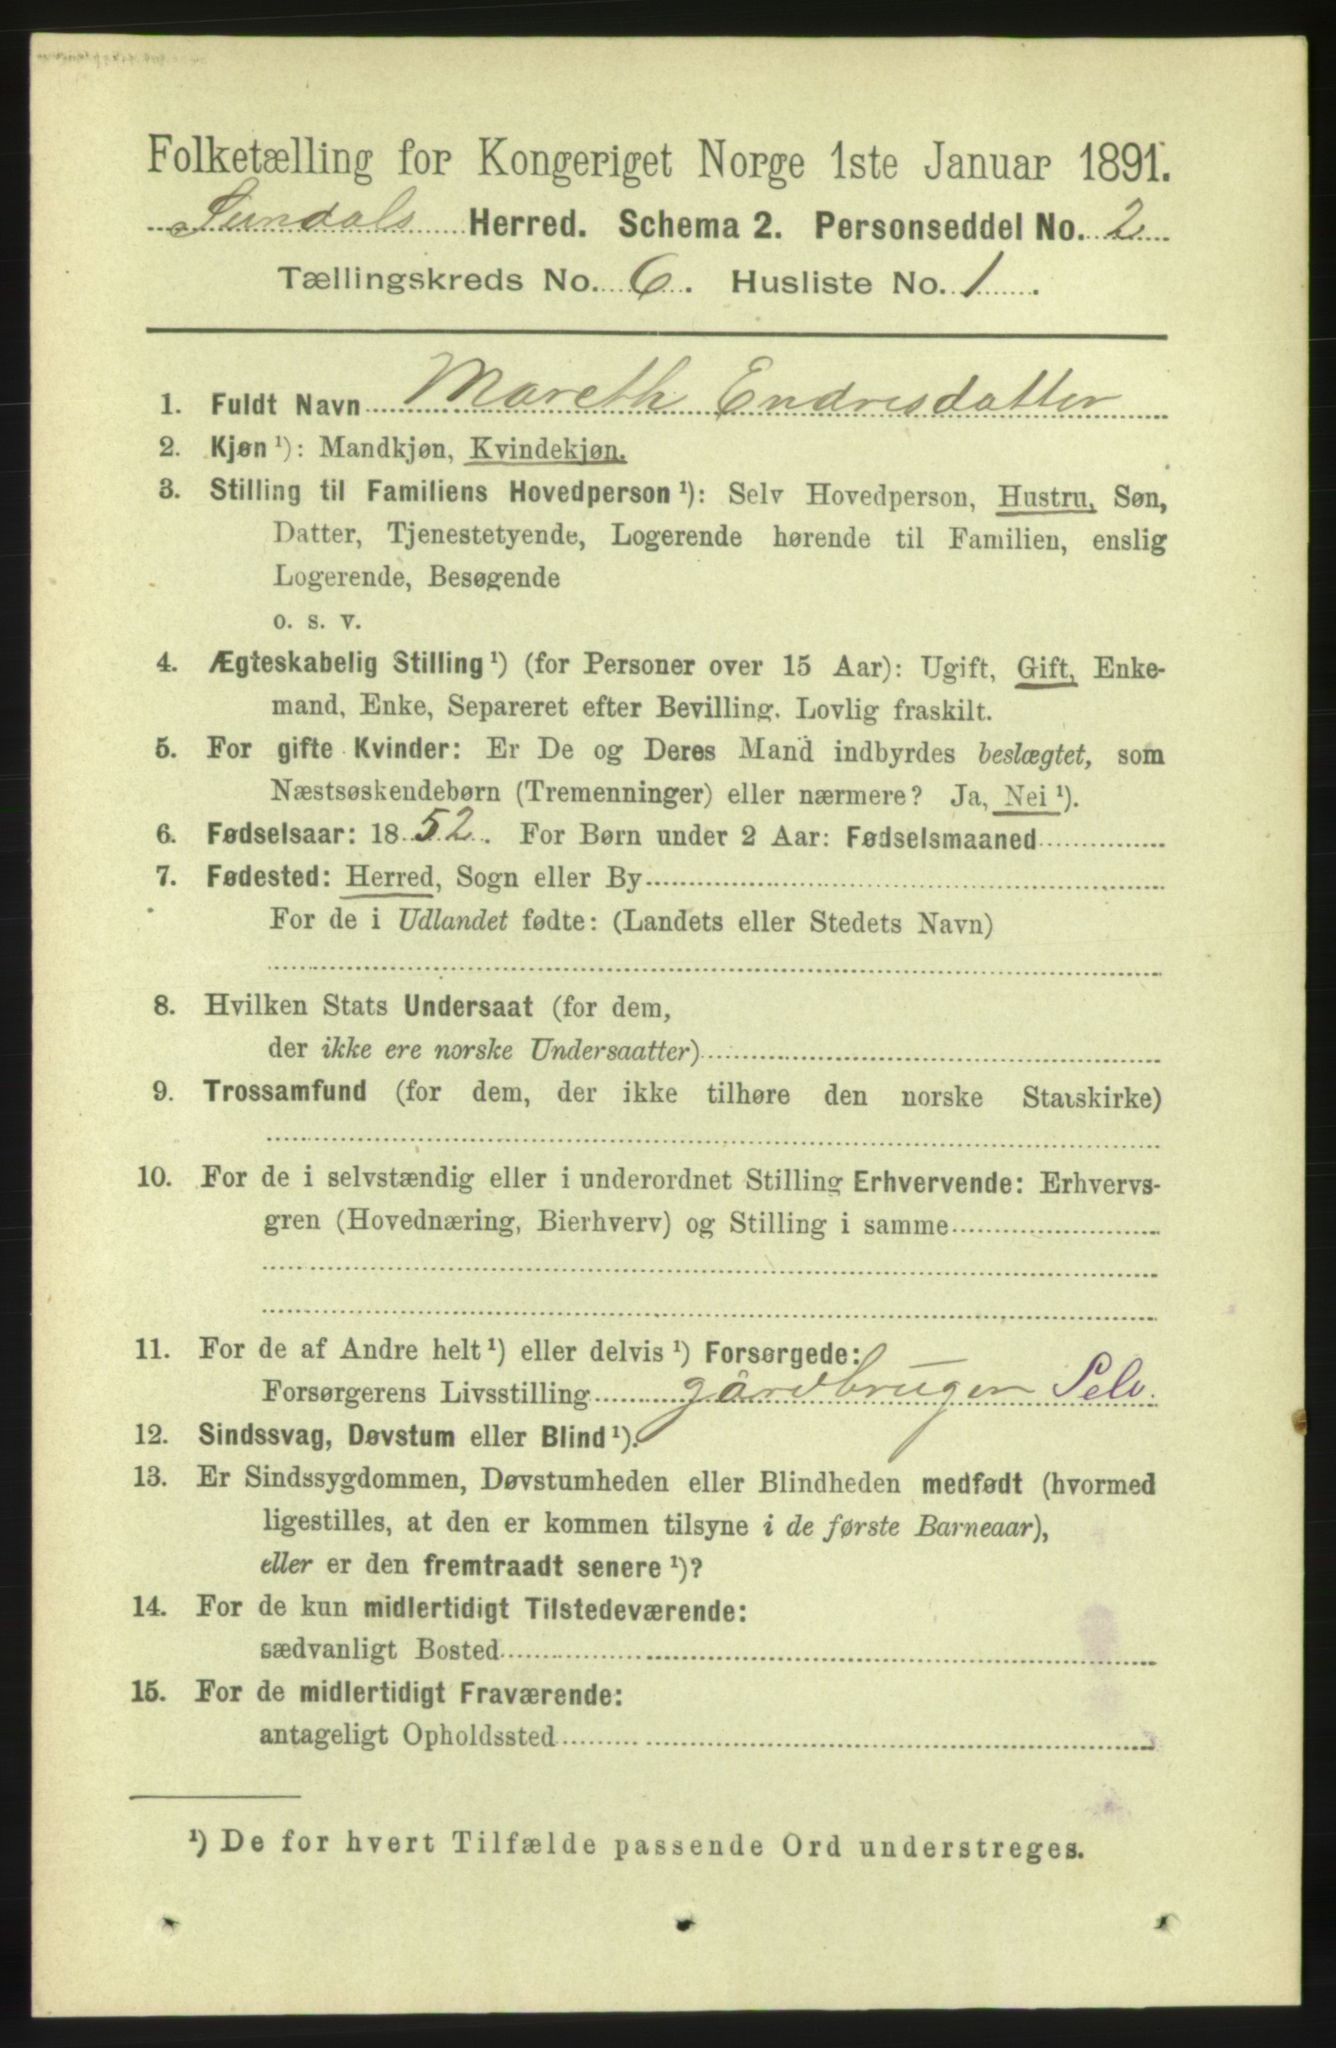 Folketælling for Kongeriget Norge 1ste Januar 1891.
Sundals Herred. Schema 2. Personseddel No. 2
Tællingskreds No. 6. Husliste No. 1.
1. Fuldt Navn Mareth Endresdatter
2. Kjøn ¹): Mandkjøn, Kvindekjøn.
3. Stilling til Familiens Hovedperson ¹): Selv Hovedperson, Hustru, Søn,
Datter, Tjenestetyende, Logerende hørende til Familien, enslig
Logerende, Besøgende
o. s. v.
4. Ægteskabelig Stilling ¹) (for Personer over 15 Aar): Ugift, Gift, Enke-
mand, Enke, Separeret efter Bevilling. Lovlig fraskilt.
5. For gifte Kvinder: Er De og Deres Mand indbyrdes beslægtet, som
Næstsøskendebørn (Tremenninger) eller nærmere? Ja, Nei ¹).
6. Fødselsaar: 1852. For Børn under 2 Aar: Fødselsmaaned
7. Fødested: Herred, Sogn eller By
For de i Udlandet fødte: (Landets eller Stedets Navn)
8. Hvilken Stats Undersaat (for dem,
der ikke ere norske Undersaatter)
9. Trossamfund (for dem, der ikke tilhøre den norske Statskirke)
10. For de i selvstændig eller i underordnet Stilling Erhvervende: Erhvervs-
gren (Hovednæring, Bierhverv) og Stilling i samme
11. For de af Andre helt ¹) eller delvis ¹) Forsørgede:
Forsørgerens Livsstilling gårdbruger Selv.
12. Sindssvag, Døvstum eller Blind ¹).
13. Er Sindssygdommen, Døvstumheden eller Blindheden medfødt (hvormed
ligestilles, at den er kommen tilsyne i de første Barneaar),
eller er den fremtraadt senere ¹)?
14. For de kun midlertidigt Tilstedeværende:
sædvanligt Bosted
15. For de midlertidigt Fraværende:
antageligt Opholdssted
¹) De for hvert Tilfælde passende Ord understreges.